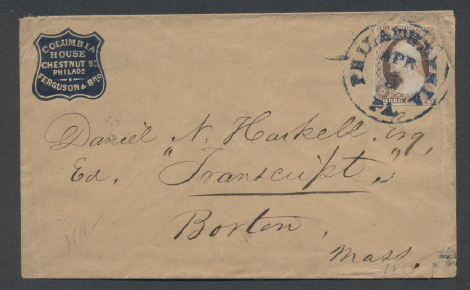 COLUMBIA
HOUSE
CHESTNUT St
PHILADa
FERGUSON & BRO.
PHILADELPHIA
APR
Pa
Daniel N. Haskell, Esq,
Ed. "Transcript,"
Boston,
Mass.